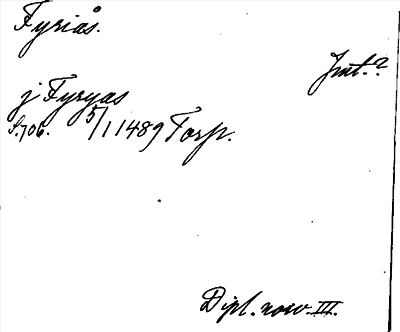 Fyriås.
Jmt.?
j Fyryas
S.706. 5/1 1489 Torp.
Dipl. norv. III.